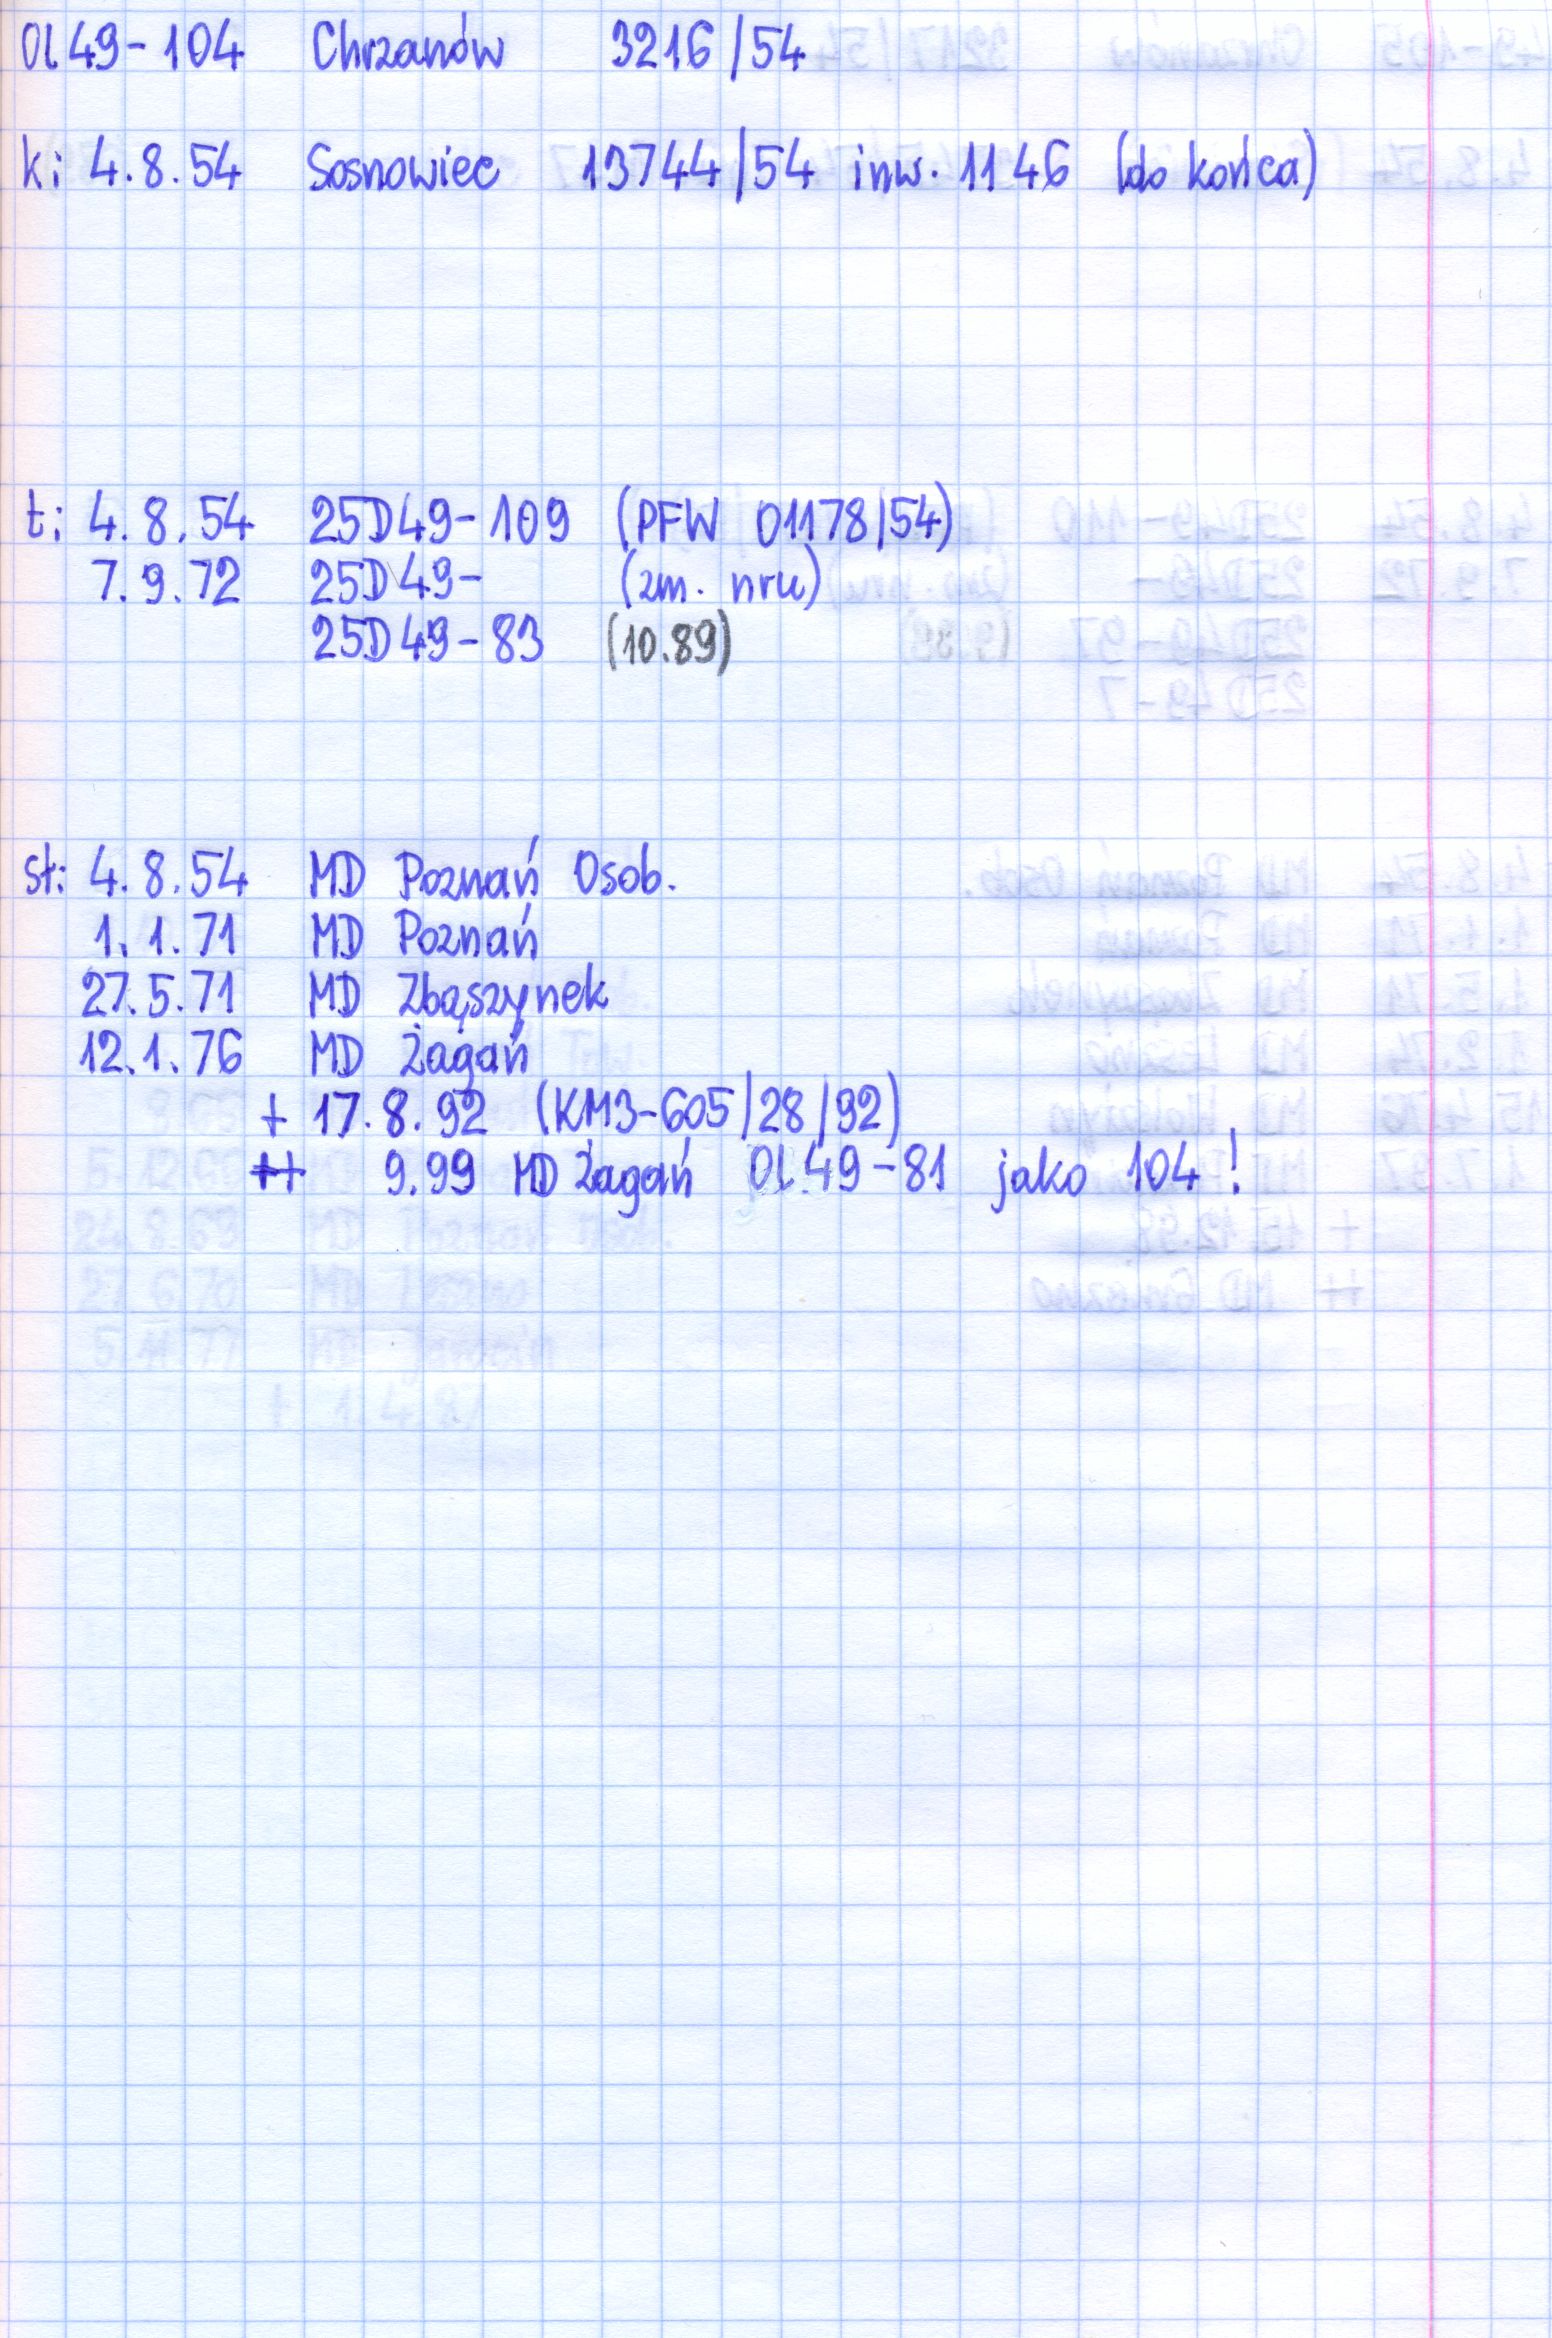 Ol49-104 Chrzanów 3216/54
k: 4.8.54 Sosnowiec 13744/54 inw. 1146 (do końca)
t: 4.8.54 25D49-109 (PFW 01178/54)
7.9.72 25D49- (zm. nru)
25D49-83 (10.89)
st: 4.8.54 MD Poznań Osob.
1.1.71 MD Poznań
27.5.71 MD Zbąszynek
12.1.76 MD Żagań
+ 17.8.92 (KM3-605/28/92)
++ 9.99 MD Żagań Ol49-81 jako 104!